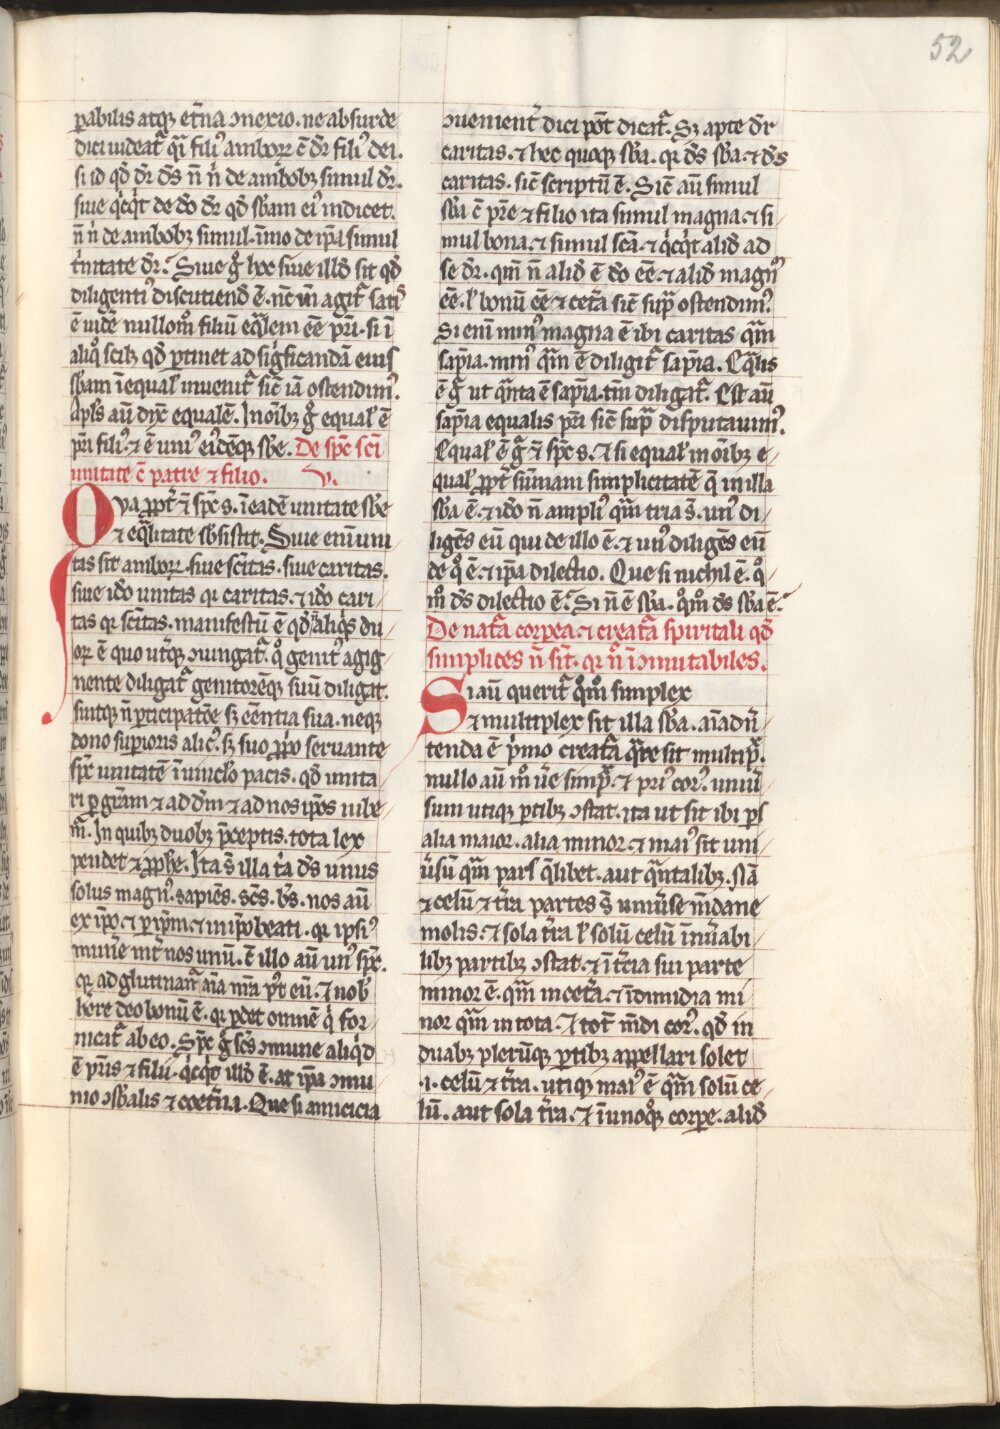 52
ꝑabilis atqꝫ et̄na ꝯnexio. ne absurde
dici uideat᷑ qꝛ filiꝰ amborꝝ ē dr̄ filiꝰ dei.
si id qd̄ dr̄ ds̄ n̄ n̄ de ambobꝫ simul dr̄.
siue qͥcqͥt de do dr̄ qd̄ sb̄am eiꝰ indicet.
n̄ n̄ de ambobꝫ simul. īmo de ip̄a simul
tͥnitate dr̄. Siue gͦ hoc siue illd̄ sit qd̄
diligentiꝰ discutiend̄ ē. nc̄ ūn agit᷑ satͥs
ē uidē nulloᵐ filiū eq̄lem eē pr̄i. si ī
aliqͦ scilꝫ qd̄ ꝑtinet ad sigͥficandā eius
sb̄am īequaƚ inuenit᷑ sic̄ iā ostendimꝰ.
Apl̄s aū dix̄ equalē. In oībꝫ gͦ equaƚ ē
pr̄i filiꝰ. ⁊ ē uniꝰ eiꝰdēqꝫ sb̄e. De sp̄c sc̄i
unitate c̄ patre ⁊ filio. v.
Qva ꝓpt᷑ ⁊ sp̄c s. ī eadē unitate sb̄e
⁊ eq̄litate sb̄sistit. Siue eni uni
tas sit amborꝝ. siue sc̄itas. siue caritas.
siue ido unitas qꝛ caritas. ⁊ ido cari
tas qꝛ sc̄itas. manifestū ē qd̄ aliqͥs du
orꝝ ē quo ut̓qꝫ ꝯiungat᷑. qͦ genitꝰ a gig
nente diligat᷑ genitorēqꝫ suū diligat.
sintqꝫ n̄ ꝑticipatōe sꝫ eēntia sua. neqꝫ
dono suꝑioris alicꝰ. sꝫ suo ꝓpͥo seruante
sp̄c unitatē ī uinclo pacis. qd̄ imita
ri ꝑ gr̄am ⁊ ad dm̄ ⁊ ad nos ip̄os iube
m᷑. In quibꝫ duobꝫ p̄ceptis. tota lex
pendet ⁊ ꝓph̄e. Ita s̄ illa tͥa ds̄ unus
solus magnꝰ. sapiēs. sc̄s. bt̄s. nos aū
ex ip̄o. ⁊ ꝑ ip̄m. ⁊ in ip̄o beati. qꝛ ipsiꝰ
munͤe int᷑ nos unū. c̄ illo aū unꝰ sp̄c.
qꝛ adglutinat᷑ aīa nr̄a pꝰt eū. ⁊ nob̄
herͤe deo bonū ē. qꝛ ꝑdet omnē qͥ for
nicat᷑ ab eo. Sp̄c gͦ sc̄s ꝯmune aliqͥd
ē pr̄is ⁊ filii. qͥcqͥd illd̄ ē. at ip̄a ꝯmu
nio ꝯsb̄alis ⁊ coet̓na. Que si amicicia
ꝯuenient᷑ dici pōt dicat᷑. Sꝫ apte dr̄
caritas. ⁊ hec quoqꝫ sb̄a. qꝛ ds̄ sb̄a ⁊ ds̄
caritas. sic̄ scriptū ē. Sic̄ aū simul
sb̄a c̄ pr̄e ⁊ filio ita simul magna. ⁊ si
mul bona. ⁊ simul sc̄a. ⁊ qͥcqͥt aliḋ ad
se dr̄. qm̄ n̄ aliḋ ē do eē. ⁊ aliḋ magnꝰ
eē. ƚ bonū eē ⁊ cet̓a sic̄ supͣ ostendimꝰ.
Si eni minꝰ magna ē ibi caritas qͣm
sapīa. minꝰ qͣm ē diligit᷑ sapīa. Eqͣlis
ē gͦ ut qͣnta ē sapīa. tm̄ diligat᷑. Est aū
sapīa equalis pr̄i sic̄ supͣ disputauimꝰ.
Equaƚ ē gͦ ⁊ sp̄c s. ⁊ si equaƚ in oībꝫ e
quaƚ ꝓpt᷑ sūmam simplicitatē q̄ in illa
sb̄a ē. ⁊ ido n̄ ampliꝰ qͣm tria s̄. unꝰ di
ligēs eū qui de illo ē. ⁊ unꝰ diligēs eū
de qͦ ē. ⁊ ip̄a dilectio. Que si nichil ē. qͦ
mͦ ds̄ dilectio ē. Si n̄ ē sb̄a. qͦmͦ ds̄ sb̄a ē.
De nat᷑a corpea. ⁊ creat᷑a spiritali qd̄
simplices n̄ sīt. qꝛ n̄ īcōmutabiles.
Si aū querit᷑ qͦmͦ simplex
⁊ multiplex sit illa sb̄a. aīadū
tenda ē pͥmo creat᷑a qͣre sit multipͣ.
nullo aū mͦ ūe simpͣ. ⁊ priꝰ corꝰ. uniū
sum utiqꝫ ꝑtibꝫ ꝯstat. ita ut sit ibi ꝑs
alia maior. alia minor. ⁊ maiꝰ sit uni
ūsū qͣm pars qͣlibet. aut qͣntalibꝫ. Nā
⁊ celū ⁊ tͥra partes s̄ uniūse mͥdane
molis. ⁊ sola tͥra ƚ solū celū īnūabi
libꝫ partibꝫ ꝯstat. ⁊ ī tͥcia sui parte
minor ē. qͣm in cet᷑a. ⁊ ī dimidia mi
nor qͣm in tota. ⁊ totͥ mͥdi corꝰ. qd̄ in
duabꝫ plerūqꝫ ꝑtibꝫ appellari solet
.i. celū ⁊ tͥra. utiqꝫ maiꝰ ē qͣm solū ce
lū. aut sola tͥra. ⁊ ī unoqͦqꝫ corpe. aliḋ